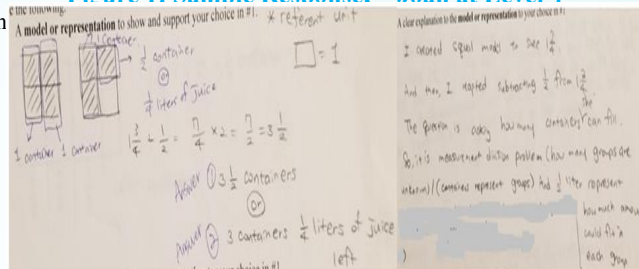 A model or representation to show and support your choice in #1. * referent unit
1 container
1/2 container
or
1/4 liters of juice
□ = 1
1 container 1 container
1 3/4 ÷ 1/2 = 7/4 × 2 = 7/2 = 3 1/2
Answer ① 3 1/2 containers
or
Answer ② 3 containers 1/4 liters of juice
left
A clear explanation to the model or representation to your choice in #1
I created equal models to see 1 3/4
And then, I repeated subtracting 1/2 from 1 3/4
The question is asking how many containers can fill
So, it is measurement division problem (how many groups are
unknown)/(containers represent groups) and 1/2 liter represent
how much
could fill in
each group